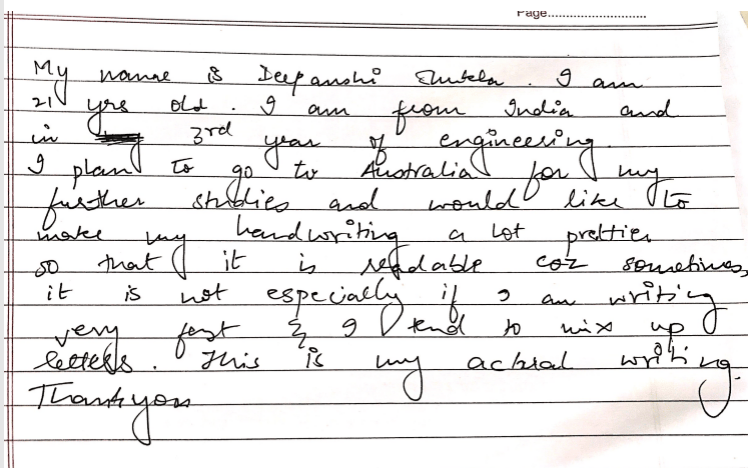 Page..............................
My name is Deepanshi Shukla. I am
21 yrs old. I am from India and
in 3rd year of engineering.
I plan to go to Australia for my
further studies and would like to
make my handwriting a lot prettier
so that it is readable coz sometimes
it is not especially if I am writing
very fast & I tend to mix up
letters. This is my actual writing.
Thankyou